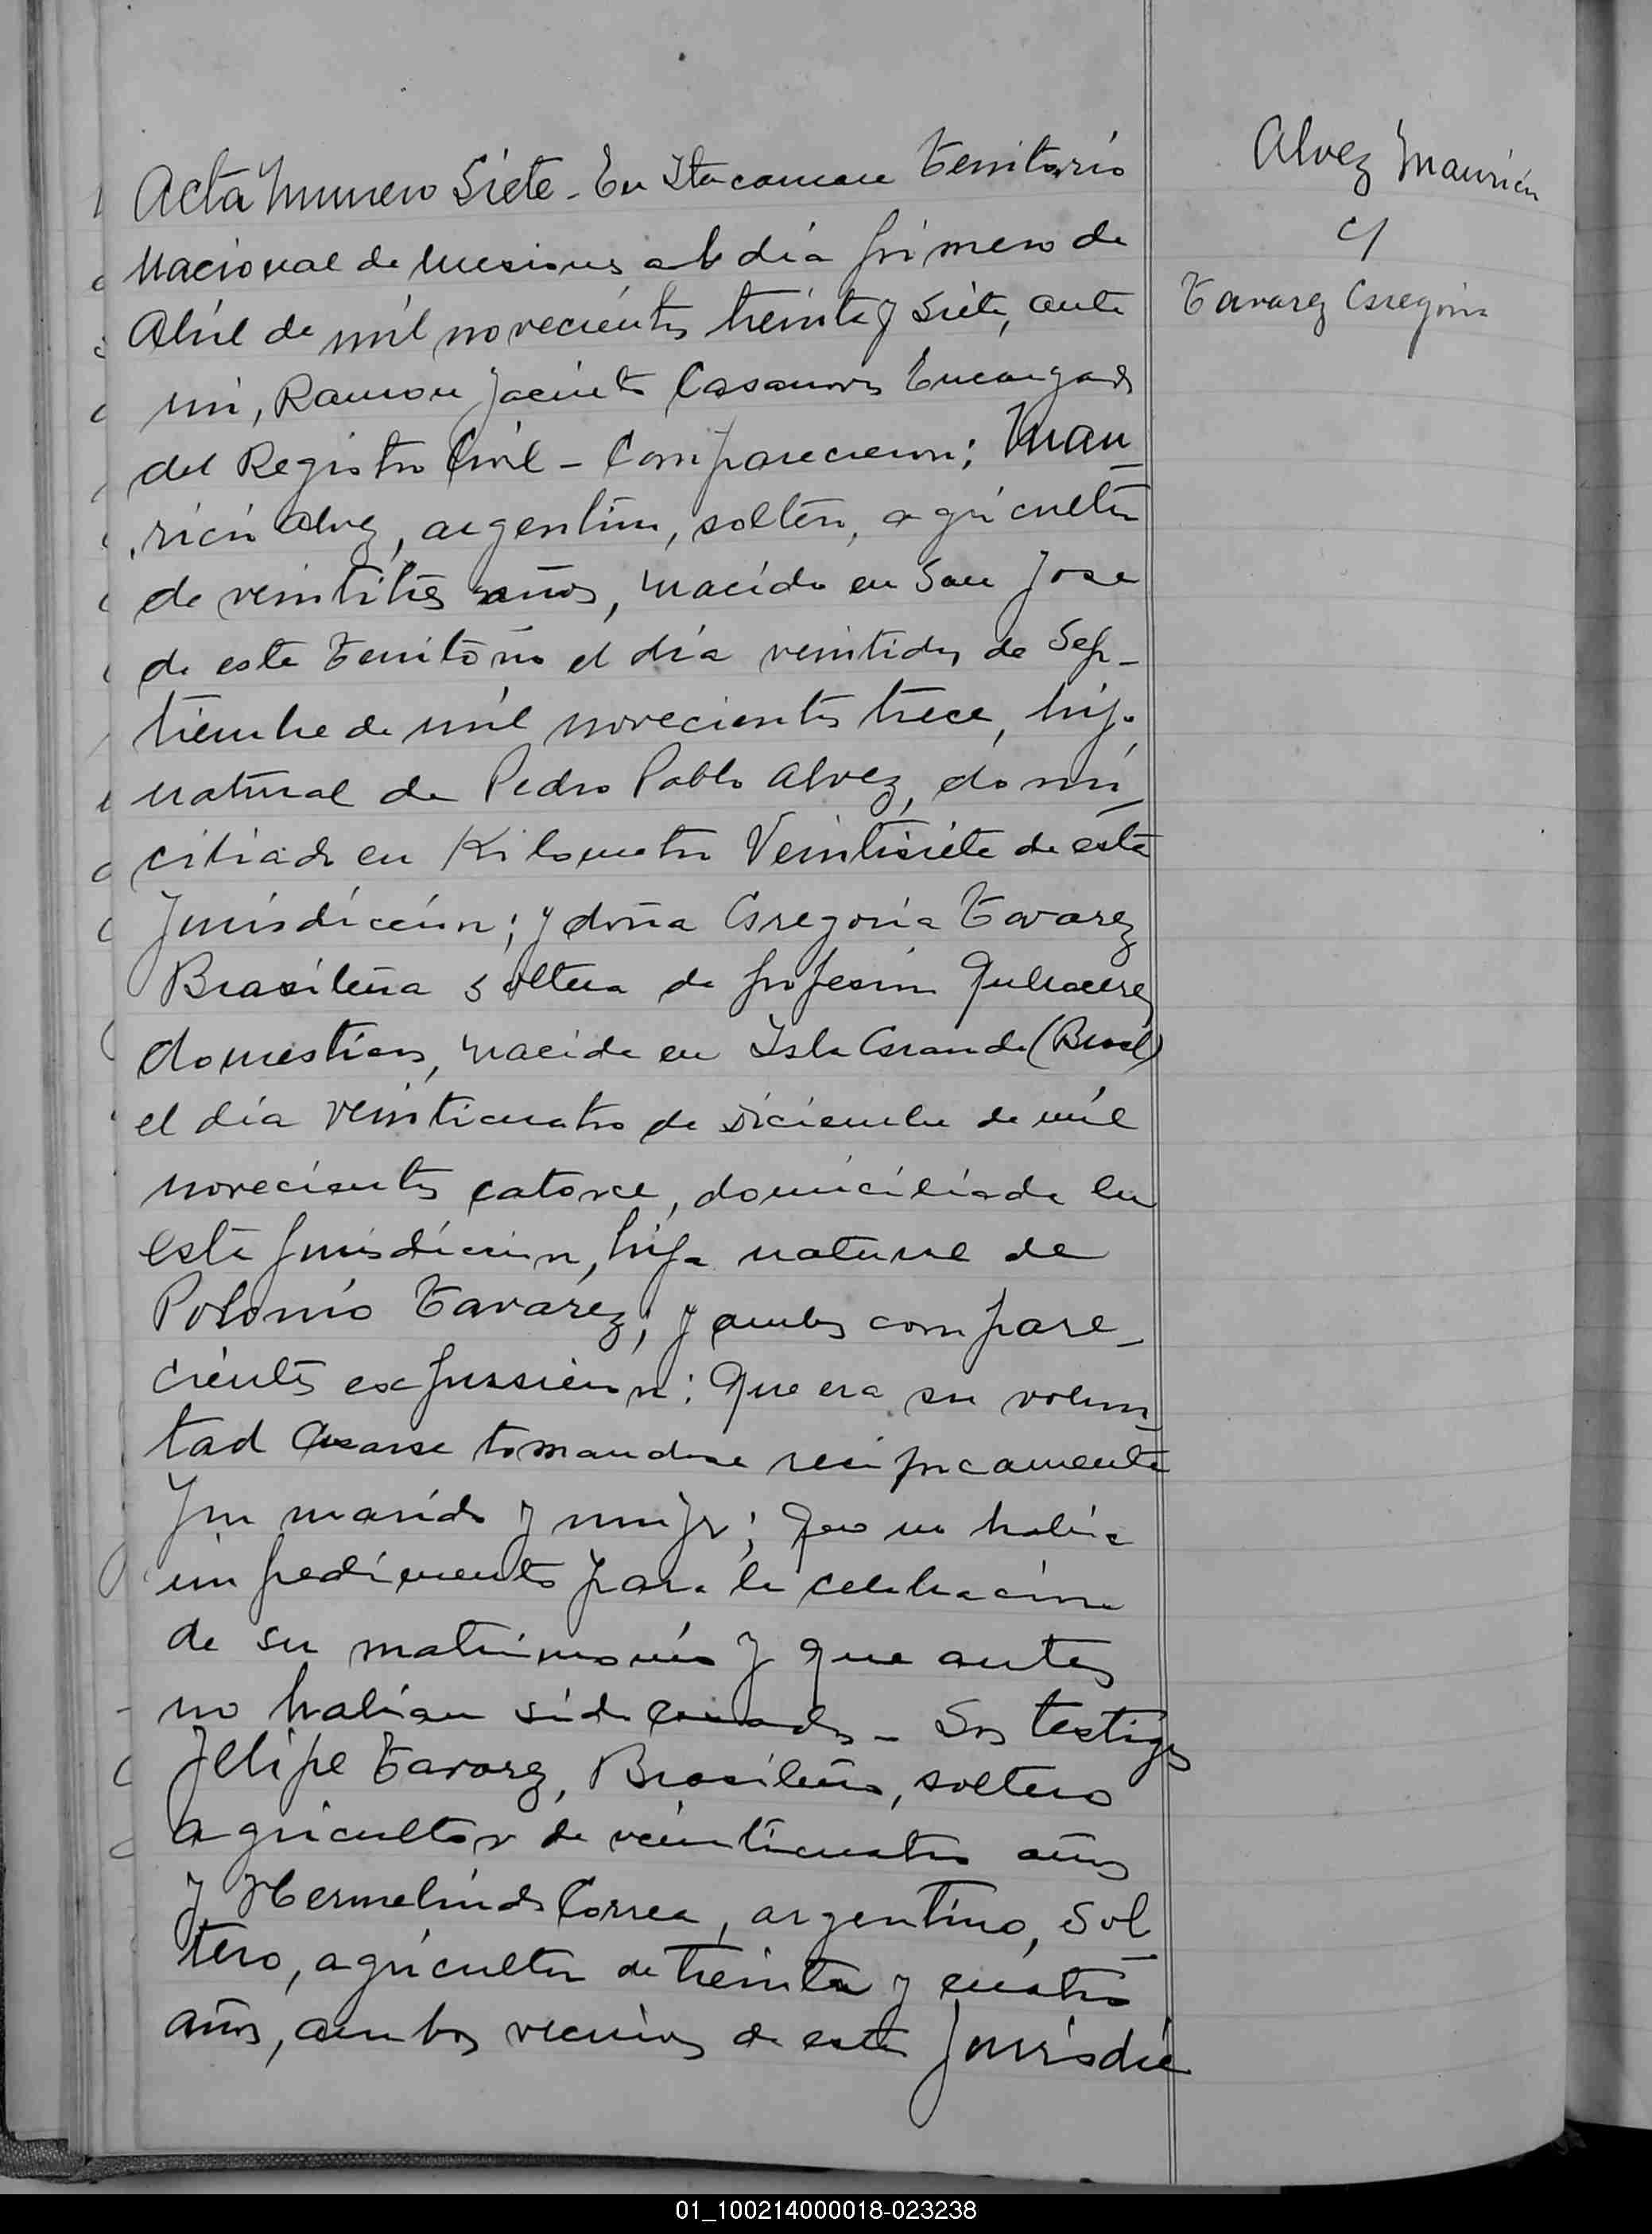 Acta Numero Siete - En Itacaruare Territorio
Nacional de Misiones a l dia primero de
Abril de mil novecientos treinta y siete, ante
mi, Ramon Jacinto Casanova Encargado
del Registro Civil - Comparecieron; Mau_
ricio Alvez, argentino, soltero, agricultor
de veintitres años, nacido en San Jose
de este Territorio el dia veintidos de Sep_
tiembre de mil novecientos trece, hijo
natural de Pedro Pablo Alvez, domi_
ciliado en Kilometro Veintisiete de esta
Jurisdiccion; y doña Gregoria Tavarez
Brasileña soltera de profesion Quehaceres
domesticos, nacida en Isla Grande (Brasil)
el dia veinticuatro de Diciembre de mil
novecientos catorce, domiciliada en
esta Jurisdiccion, hija natural de
Polonio Tavarez; y ambos compare_
cientes expusieron: Que era su volun_
tad Casarse tomandose reciprocamente
por marido y mujer; Que no habia
impedimento para la celebracion
de su matrimonio y que antes
no habian sido casados - Son testigos
Felipe Tavarez, Brasileño, soltero
agricultor de veinticuatro años
y Hermelindo Correa, argentino, Sol_
tero, agricultor de treinta y cuatro
años, ambos vecinos de esta Jurisdic
Alvez Mauricio
c/
Tavarez Gregoria
01_100214000018-023238